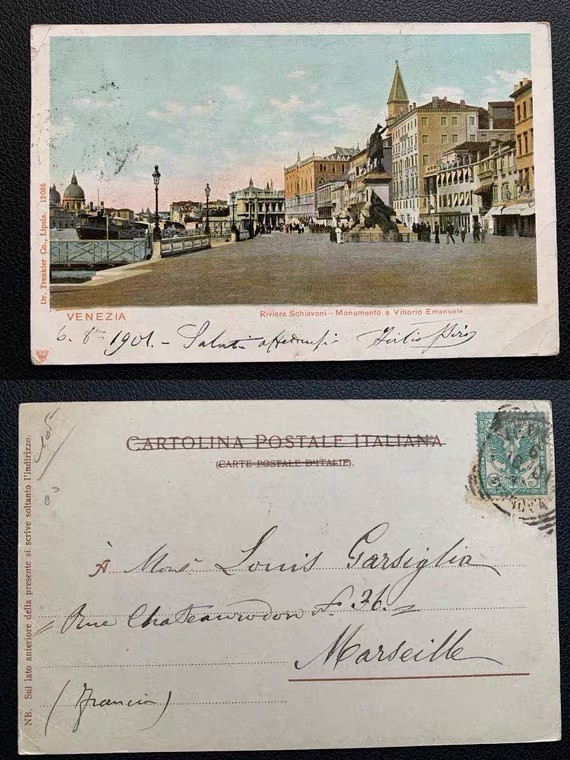 Dr. Trenkler Co., Lipsia. 12086
VENEZIA
Riviera Schiavoni - Monumento a Vittorio Emanuele
1901. - Saluti
CARTOLINA POSTALE ITALIANA
(CARTE POSTALE D'ITALIE).
NB. Sul lato anteriore della presente si scrive soltanto l'indirizzo.
A Monsr Louis Garsiglia
Rue Chateauredon No. 36.
Marseille
(Francia)